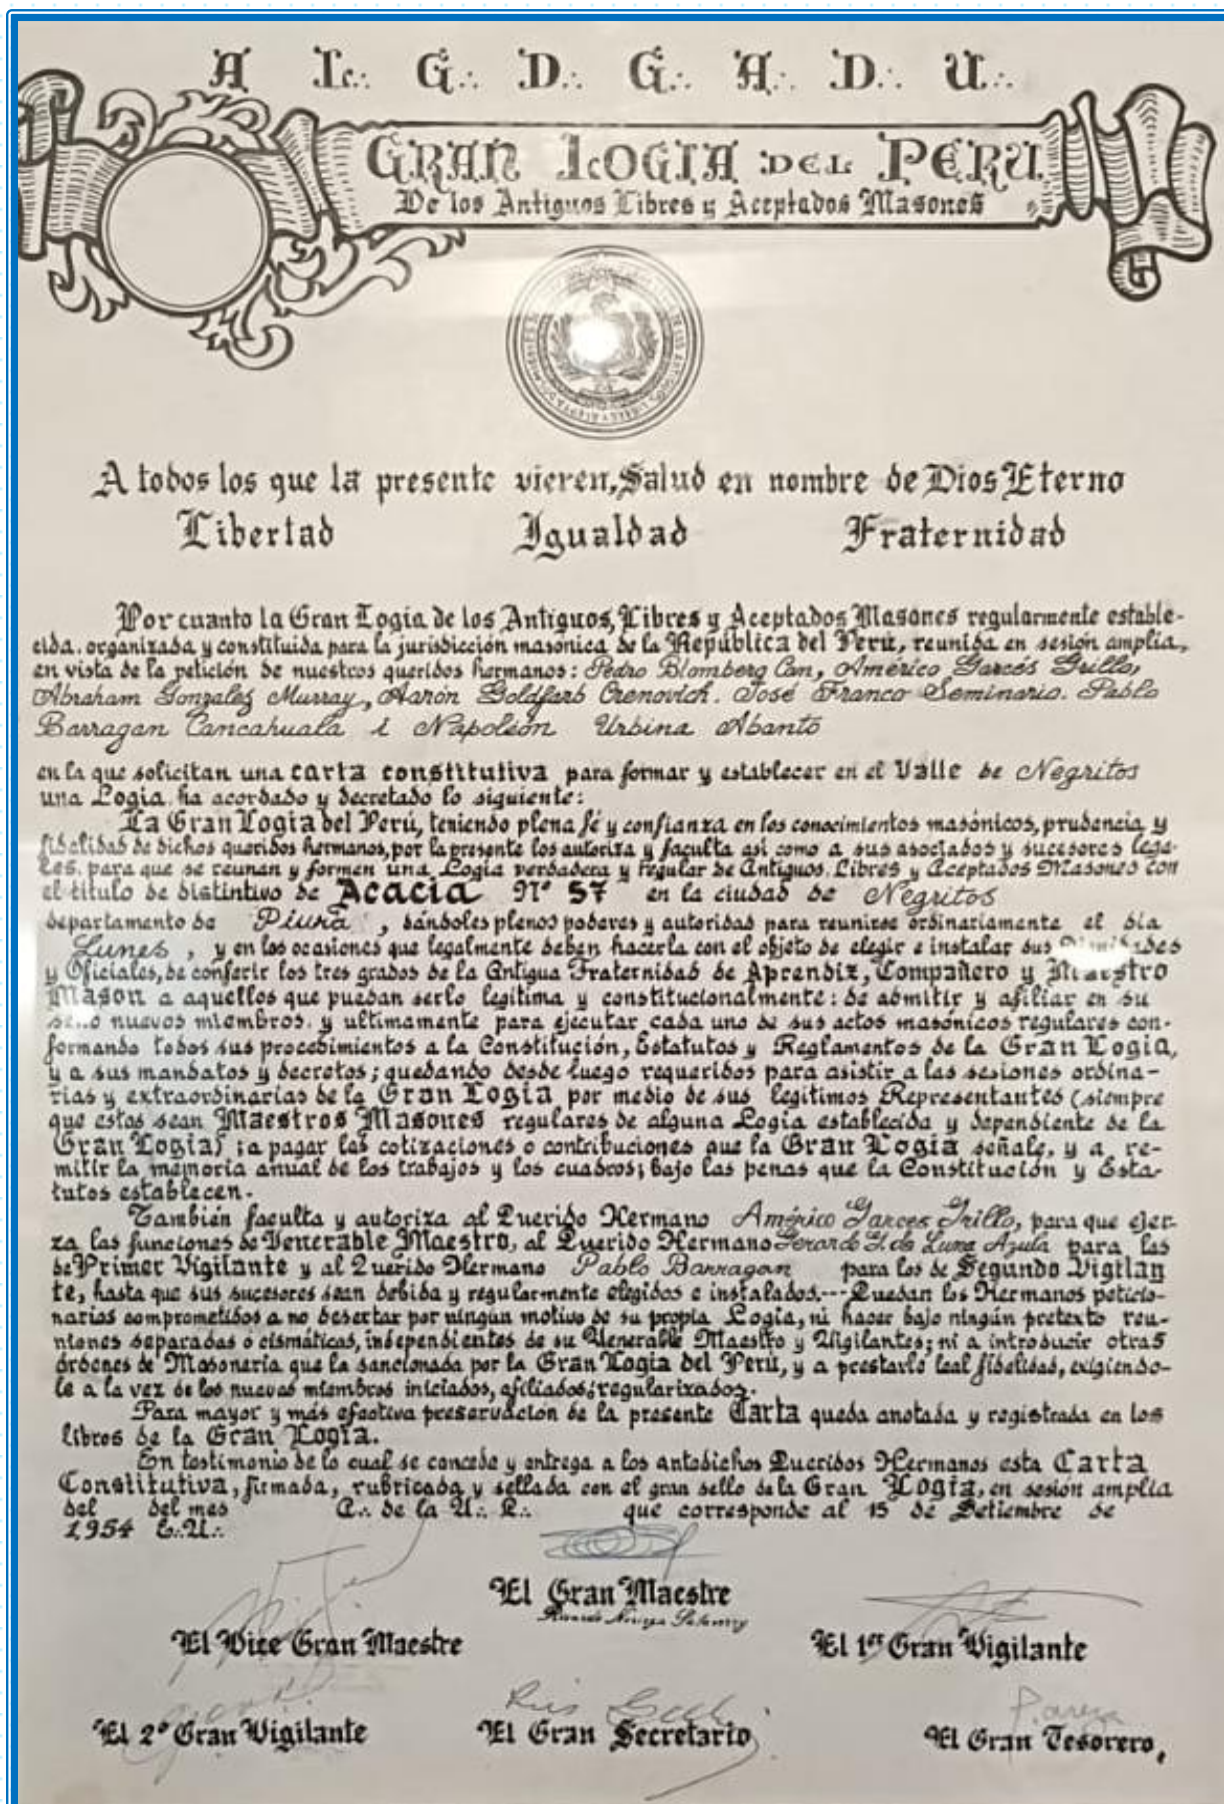 A L.·. G.·. D.·. G.·. A.·. D.·. U.·.
GRAN LOGIA DEL PERU
De los Antiguos Libres y Aceptados Masones
A todos los que la presente vieren, Salud en nombre de Dios Eterno
Libertad Igualdad Fraternidad
Por cuanto la Gran Logia de los Antiguos, Libres y Aceptados Masones regularmente estable-
cida, organizada y constituida para la jurisdicción masónica de la República del Perú, reunida en sesión amplia,
en vista de la petición de nuestros queridos hermanos: Pedro Blomberg Can, Américo Garcés Grillo,
Abraham Gonzalez Murray, Aarón Goldfarb Orenovich. José Franco Seminario. Pablo
Barragan Cancahuala i Napoleón Urbina Abanto
en la que solicitan una carta constitutiva para formar y establecer en el Valle de Negritos
una Logia, ha acordado y decretado lo siguiente:
La Gran Logia del Perú, teniendo plena fé y confianza en los conocimientos masónicos, prudencia y
fidelidad de dichos queridos hermanos, por la presente los autoriza y faculta así como a sus asociados y sucesores lega-
les, para que se reunan y formen una Logia verdadera y regular de Antiguos, Libres y Aceptados Masones con
el título de distintivo de Acacia Nº 57 en la ciudad de Negritos
departamento de Piura, dándoles plenos poderes y autoridad para reunirse ordinariamente el día
Lunes, y en las ocasiones que legalmente deben hacerla con el objeto de elegir e instalar sus
y Oficiales, de conferir los tres grados de la Antigua Fraternidad de Aprendiz, Compañero y Maestro
Mason a aquellos que puedan serlo legítima y constitucionalmente: de admitir y afiliar en su
seno nuevos miembros, y ultimamente para ejecutar cada uno de sus actos masónicos regulares con-
formando todos sus procedimientos a la Constitución, Estatutos y Reglamentos de la Gran Logia,
y a sus mandatos y decretos; quedando desde luego requeridos para asistir a las sesiones ordina-
rias y extraordinarias de la Gran Logia por medio de sus legítimos Representantes (siempre
que estos sean Maestros Masones regulares de alguna Logia establecida y dependiente de la
Gran Logia) ; a pagar las cotizaciones o contribuciones que la Gran Logia señale, y a re-
mitir la memoria anual de los trabajos y los cuadros; bajo las penas que la Constitución y Esta-
tutos establecen.
También faculta y autoriza al Querido Hermano Américo Garces Grillo, para que ejer-
za las funciones de Venerable Maestro, al Querido Hermano Gerardo G. de Luna Azula para las
de Primer Vigilante y al Querido Hermano Pablo Barragan para los de Segundo Vigilan
te, hasta que sus sucesores sean debida y regularmente elegidos e instalados.--- Quedan los Hermanos peticio-
narios comprometidos a no desertar por ningún motivo de su propia Logia, ni hacer bajo ningún pretexto reu-
niones separadas o cismáticas, independientes de su Venerable Maestro y Vigilantes; ni a introducir otras
órdenes de Masonería que la sancionada por la Gran Logia del Perú, y a prestarlo leal fidelidad, exigiendo-
le a la vez de los nuevos miembros iniciados, afiliados, regularizados.
Para mayor y más efectiva preservación de la presente Carta queda anotada y registrada en los
libros de la Gran Logia.
En testimonio de lo cual se concede y entrega a los antedichos Queridos Hermanos esta Carta
Constitutiva, firmada, rubricada y sellada con el gran sello de la Gran Logia, en sesión amplia
del del mes A.·. de la V.·. L.·. que corresponde al 15 de Setiembre de
1954 E.·.V.·.
El Gran Maestre
El Vice Gran Maestre El 1er Gran Vigilante
El 2º Gran Vigilante El Gran Secretario El Gran Tesorero,